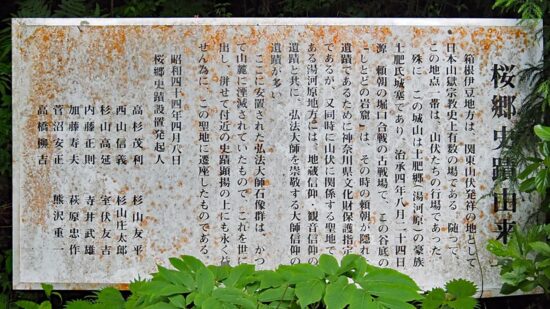 桜郷史蹟由来
箱根伊豆地方は、関東山伏発祥の地として
日本山嶽宗教史上有数の場である。随って、
この地点一帯は、山伏たちの行場であった。
殊に、この城山は土肥郷(湯河原)の豪族
土肥氏城塞であり、治承四年八月二十四日
源頼朝の堀口合戦の古戦場で、この谷底の
「しとどの岩窟」は、その時の頼朝が隠れ
遺蹟であるために神奈川県文化財保護指定
であるが、又同時に山伏に関係する聖地で
ある湯河原地方には、地蔵信仰、観音信仰の
遺蹟と共に、弘法大師を崇敬する大師信仰の
遺蹟が多い。
ここに安置された弘法大師石像群は、かつ
て山麓に湮滅されていたもので、これを世に
出し、併せて付近の史蹟顕揚の上にも永く
せん為に、この聖地に遷座したものである。
昭和四十四年四月八日
桜郷史蹟設置発起人
高杉茂利 杉山友平
西山信義 杉山庄太郎
杉山高延 室伏友吉
内藤正則 寺井武雄
加藤寿夫 萩原忠作
菅沼安正 熊沢重一
高橋柳吉